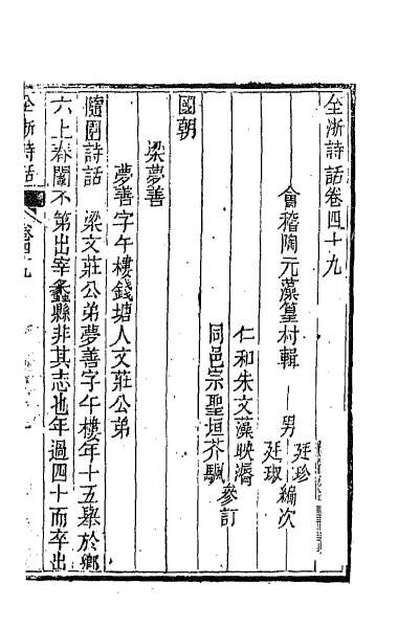 全浙詩話卷四十九
會稽陶元藻篁村輯
男廷珍廷琡編次
仁和朱文藻映漘
同邑宗聖垣芥颿
參訂
國朝
梁夢善
夢善字午樓錢塘人文莊公弟
隨園詩話 梁文莊公弟夢善字午樓年十五舉於鄉
六上春闈不第出宰蠡縣非其志也年過四十而卒出
全浙詩話 卷四十九